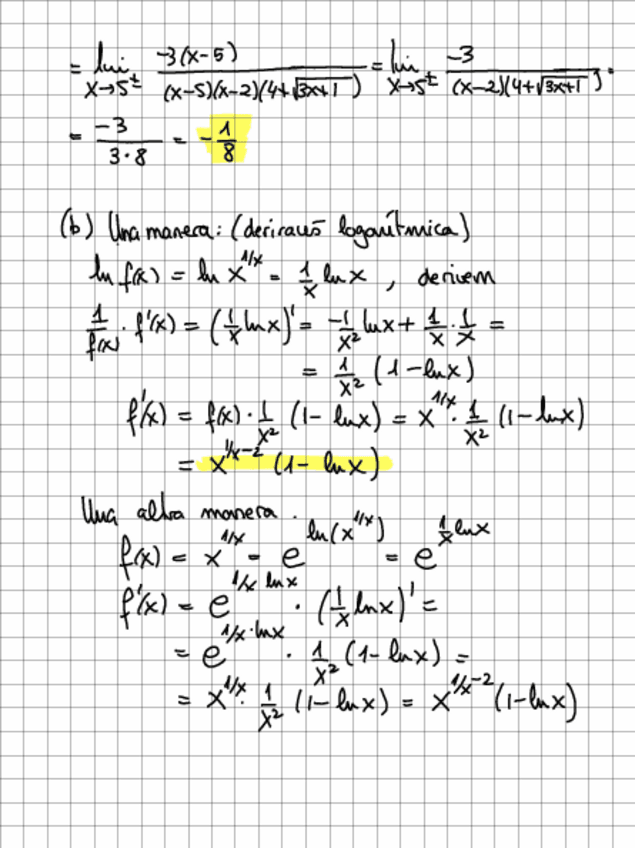 = lim x→5± -3(x-5) / (x-5)(x-2)(4+√3x+1) = lim x→5± -3 / (x-2)(4+√3x+1) .
= -3 / 3·8 = - 1/8
(b) Una manera: (derivació logarítmica)
ln f(x) = ln x^1/x = 1/x ln x , derivem
1/f(x) · f'(x) = (1/x ln x)' = -1/x² ln x + 1/x · 1/x =
= 1/x² (1 - ln x)
f'(x) = f(x) · 1/x² (1 - ln x) = x^1/x · 1/x² (1 - ln x)
= x^1/x-2 (1 - ln x)
Una altra manera .
f(x) = x^1/x = e^ln(x^1/x) = e^1/x ln x
f'(x) = e^1/x ln x · (1/x ln x)' =
= e^1/x · ln x · 1/x² (1 - ln x) =
= x^1/x · 1/x² (1 - ln x) = x^1/x-2 (1 - ln x)